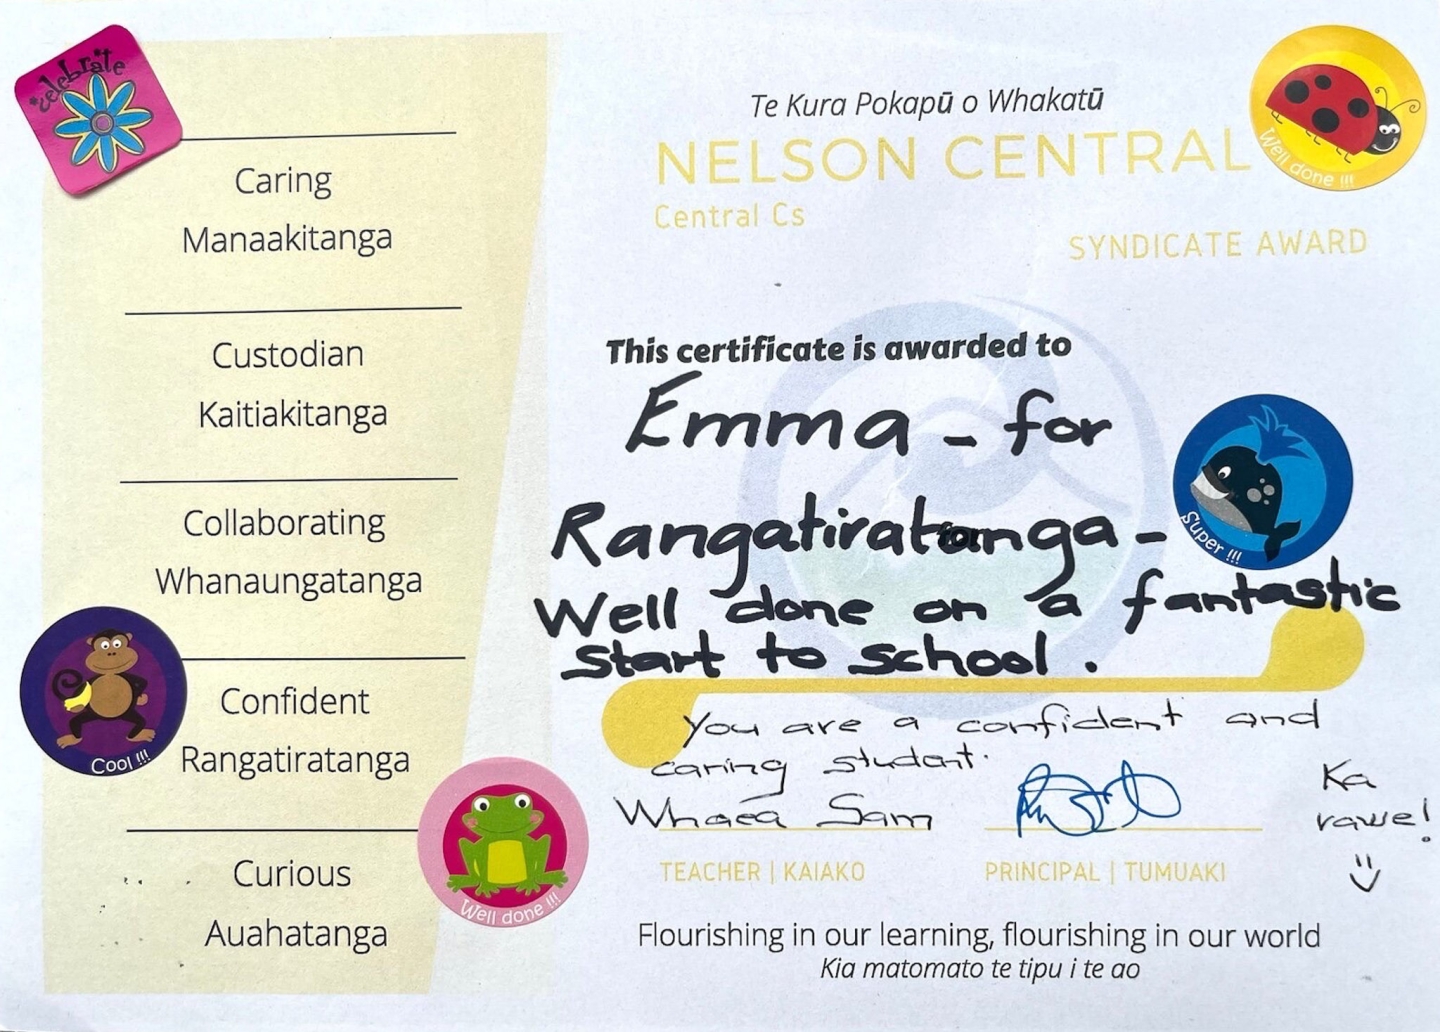 celebrate
Caring
Manaakitanga
Custodian
Kaitiakitanga
Collaborating
Whanaungatanga
Confident
Rangatiratanga
Cool !!!
Curious
Auahatanga
Well done !!!
Te Kura Pokapū o Whakatū
NELSON CENTRAL
Central Cs
SYNDICATE AWARD
Well done !!!
This certificate is awarded to
Emma - for
Rangatiratanga -
Super !!!
Well done on a fantastic
Start to school.
You are a confident and
caring student.
Whaea Sam
Ka
rawe!
TEACHER | KAIAKO
PRINCIPAL | TUMUAKI
Flourishing in our learning, flourishing in our world
Kia matomato te tipu i te ao